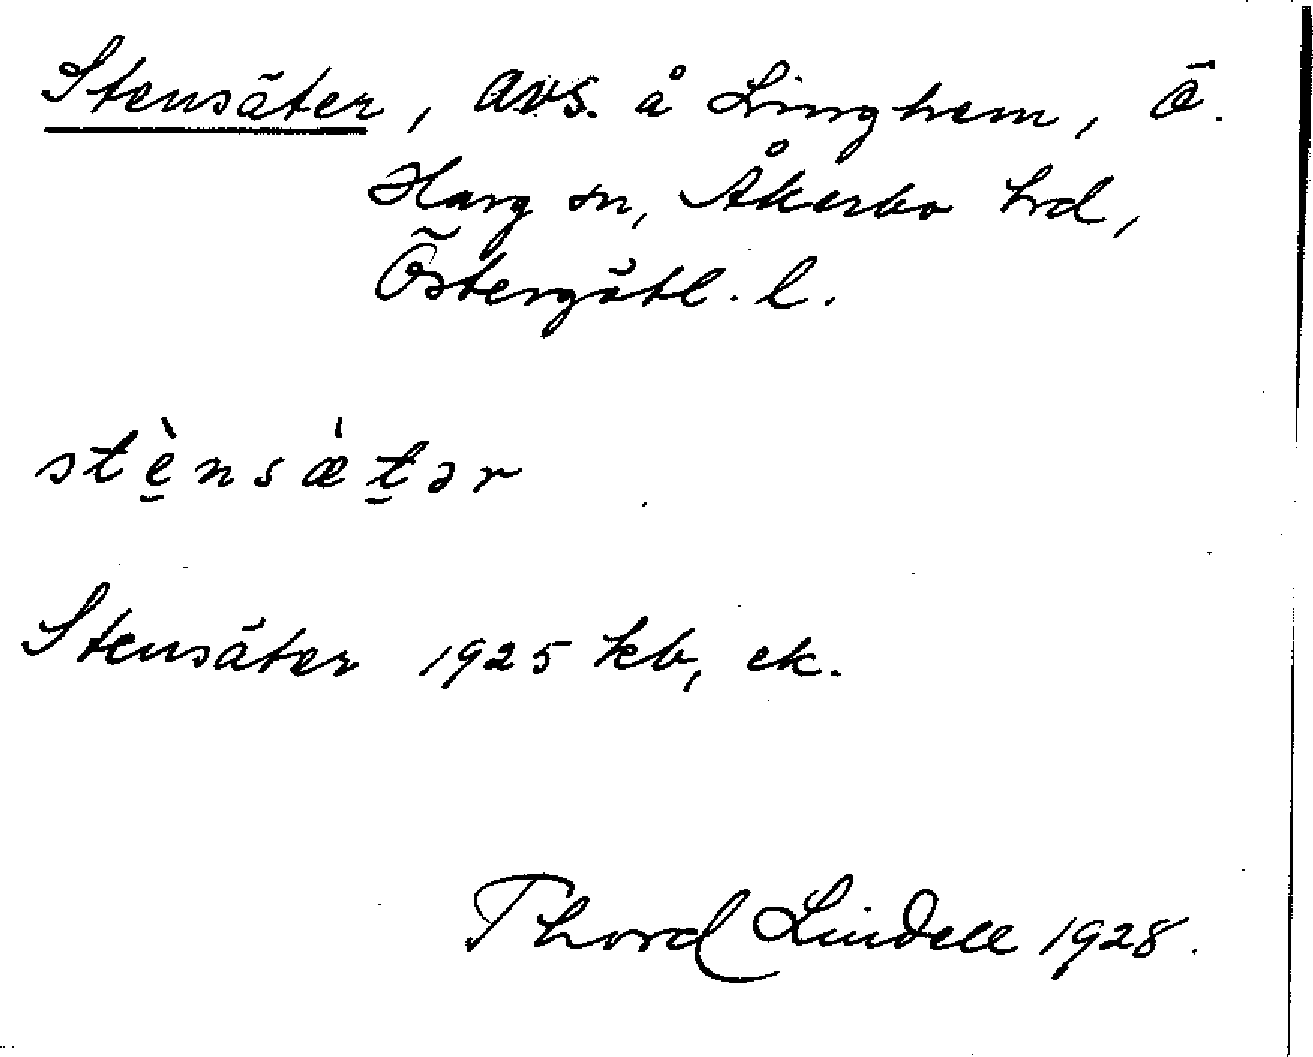 Stensäter, avs. å Linghem, Ö.
Harg sn, Åkerbo hrd,
Östergötl. l.
stè̠nsǽt̠ər
Stensäter 1925 kb, ek.
Thord Lindell 1928.